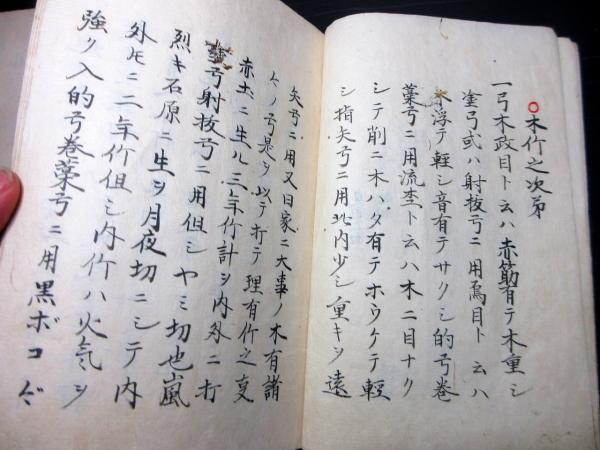 ○木竹之次第
一弓木政目ト云ハ赤筋有テ木重シ
塗弓或ハ射抜弓ニ用鳫目ト云ハ
木浮テ軽シ音有テサクシ的弓巻
藁弓ニ用流杢ト云ハ木ニ目ナク
シテ削ニ木ハタ有テホウケテ軽
シ指矢弓ニ用此内少シ重キヲ遠
矢弓ニ用又日家ニ大事ノ木有諸
ムノ弓是ヲ以テ打テ理有竹之叓
赤土ニ生ル三年竹計ヲ内外ニ打
強弓射抜弓ニ用但シヤミ切也嵐
烈キ石原ニ生ヲ月夜切ニシテ内
外モニ二年竹但シ内竹ハ火気ヲ
強ク入的弓巻藁弓ニ用黒ボコニ